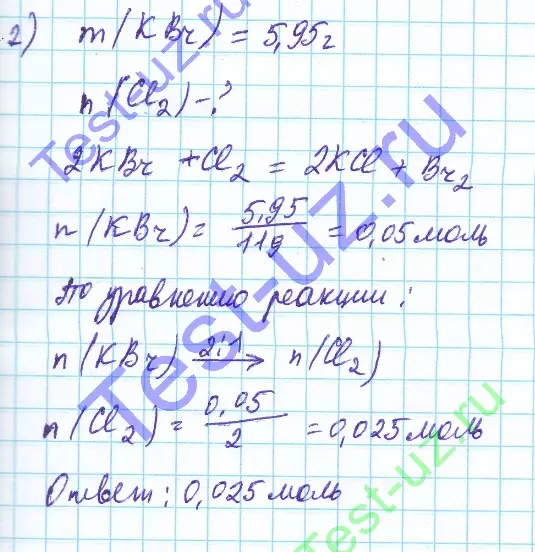 2) m(KBr) = 5,95г
n(Cl2) - ?
2KBr + Cl2 = 2KCl + Br2
n(KBr) = 5,95/119 = 0,05 моль
По уравнению реакции:
n(KBr) 2:1→ n(Cl2)
n(Cl2) = 0,05/2 = 0,025 моль
Ответ: 0,025 моль
Test-uz.ru
Test-uz.ru
Test-uz.ru